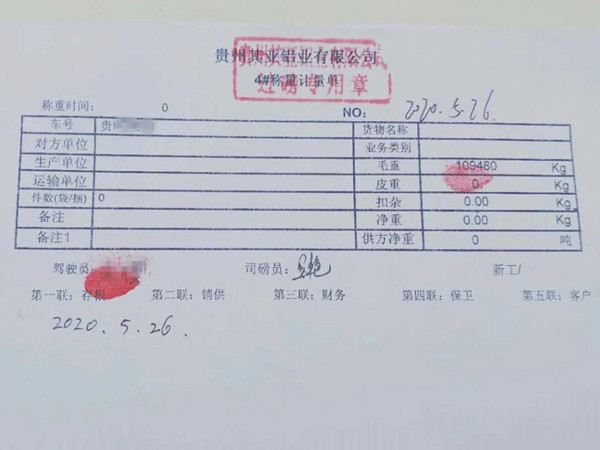 贵州其亚铝业有限公司
贵州其亚铝业有限公司
过磅专用章
4#称量计量单
称重时间： 0 NO： 2020.5.26.
车号 贵 货物名称
对方单位 业务类别
生产单位 毛重 109480 Kg
运输单位 皮重 0 Kg
件数(袋/捆) 0 扣杂 0.00 Kg
备注 净重 0.00 Kg
备注1 供方净重 0 吨
驾驶员： 司磅员： 新工/
第一联：存根 第二联：销供 第三联：财务 第四联：保卫 第五联：客户
2020.5.26.